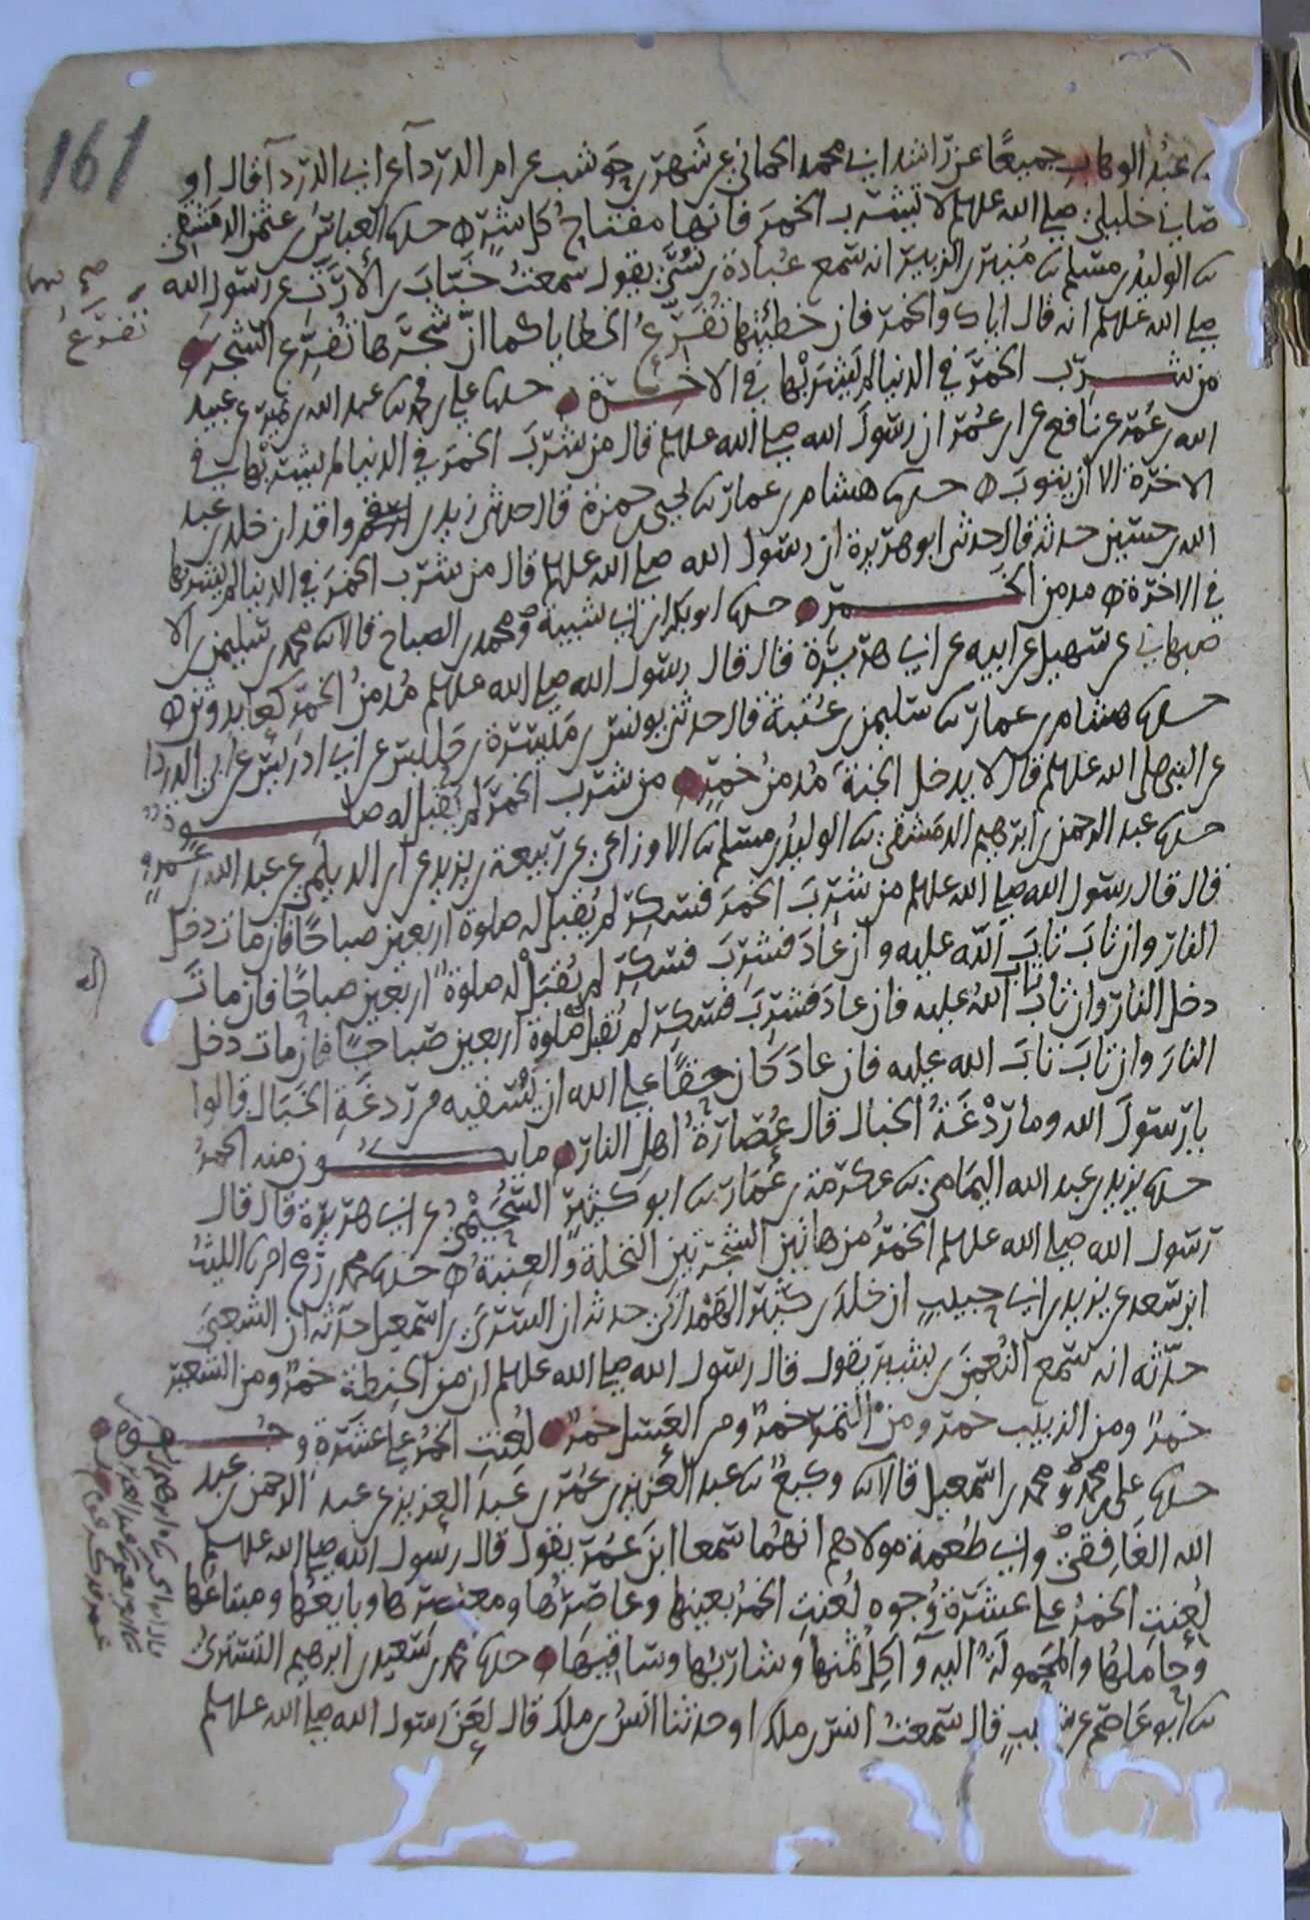 161
نا عبدُ الوهابِ جميعًا عن راشد ابي محمد الحماني عن شَهر بن حَوشب عن ام الدرداء عن ابي الدرداء قال او
صاني خليلي صلى الله عليه وسلم لا تشرب الخمرَ فانها مفتاحُ كل شرٍ ه حدثنا العباسُ بن عثمن الدمشقي
نا الوليدُ بن مسلم نا مُنير بن الزبير انه سمع عُبادة بن نُسَيّ يقول سمعتُ خبّابَ بن الأرَتِّ عن رسولِ الله
صلى الله عليه وسلم انه قال اياك والخمرَ فان خطيئتها تُفَرِّعُ الخطايا كما انّ شجرَها تُفَرِّع الشجرَ
صح
تفرَّعُ
من شرب الخمرَ في الدنيا لم يشرَبْها في الاخرة حدثنا علي بن محمد نا عبد الله بن نمير عن عبيد
الله بن عُمَر عن نافع عن ابن عُمَر ان رسولَ الله صلى الله عليه وسلم قال من شرَبَ الخمرَ في الدنيا لم يشربها في
الاخرة الا ان يتوبَ ه حدثنا هشام بن عمار نا يحيى بن حمزة قال حدثني زيد بن واقد ان خلد بن عبد
الله بن حسين حدثه قال حدثني ابو هريرة ان رسول الله صلى الله عليه وسلم قال من شرب الخمرَ في الدنيا لم يشربها
في الاخرة ه مدمن الخمر حدثنا ابو بكر بن ابي شيبة ومحمد بن الصباح قالا نا محمد بن سليمن بن الا
صبهاني عن سهيل عن ابيه عن ابي هريرة قال قال رسول الله صلى الله عليه وسلم مُدمنُ الخمرِ كعابدِ وثنٍ ه
حدثنا هشام بن عمار نا سليمن بن عُتبة قال حدثني يونس بن مَيسرة بن حَلبس عن ابي ادريس عن ابي الدردا
عن النبي صلى الله عليه وسلم قال لا يدخل الجنةَ مُدمنُ خمرٍ من شرب الخمرَ لم يُقبل له صلوةٌ
حدثنا عبد الرحمن بن ابرهيم الدمشقي نا الوليدُ بن مسلم نا الاوزاعي عن ربيعة بن يزيد عن ابن الديلمي عن عبد الله بن عَمرٍو
قال قال رسول الله صلى الله عليه وسلم من شرِبَ الخمرَ فسكِرَ لم يُقبل له صلوة اربعين صباحًا فان مات دخل
النار وان تابَ تابَ الله عليه وان عادَ فشرِبَ فسكِرَ لم يُقبَلْ له صلوةٌ اربعين صباحًا فان ماتَ
دخل النارَ وان تابَ تابَ اللهُ عليه فان عادَ فشرِبَ فسكِرَ لم تُقبل له صلوة اربعين صباحًا فان مات دخل
له
النارَ وان تابَ تابَ الله عليه فان عادَ كانَ حقًا على الله ان يُسْقيه من رَدغَةِ الخَبَال قالوا
يا رسولَ الله وما رَدْغَةُ الخبال قال عُصَارةُ اهلِ النار ما يكون منه الخمرُ
حدثنا يزيد بن عبد الله اليمامي نا عكرمة بن عَمّار نا ابو كثيرٍ السُّحَيْمِيُّ عن ابي هريرة قال قال
رسول الله صلى الله عليه وسلم الخمرُ من هاتين الشجرتين النخلةُ والعِنبةُ ه حدثنا محمد بن رُمح اخبرنا الليثُ
ابن سعد عن يزيد بن ابي حبيبٍ ان خلدَ بن كثير الهَمْداني حدثه ان السَّرِيَّ بن اسمعيل حدّثه ان الشعبيَ
حدّثه انه سمع النُعمنَ بن بشير يقول قال رسول الله صلى الله عليه وسلم ان من الحِنطة خمرًا ومن الشعير
خمرًا ومن الزبيب خمرًا ومن التمرِ خمرًا ومن العسل خمرًا لُعِنتِ الخمرُ على عشَرةِ وجُوهٍ
حدثنا علي بن محمد ومحمد بن اسمعيل قالا نا وكيعٌ نا عبد العزيز بن عُمَر بن عَبد العزيز عن عبد الرحمن بن عبد
الله الغَافِقيّ وابي طُعمة مولاهم انهُما سَمعا ابنَ عُمَرَ يقول قال رسول الله صلى الله عليه وسلم
لُعِنتِ الخمرُ على عشَرةِ وُجوهٍ لُعِنتِ الخمرُ بعينها وعاصِرُها ومعتصِرُها وبايعُها ومبتاعُها
وحامِلُها والمحمولةُ اليه وآكِلُ ثمنها وشاربُها وساقيها حدثنا محمد بن سَعيد بن ابرهيم التستري
نا ابو عاصم عن شبيبٍ قال سمعت انس بن ملك او حدثنا انسُ بن ملك قال لَعَنَ رسول الله صلى الله عليه وسلم